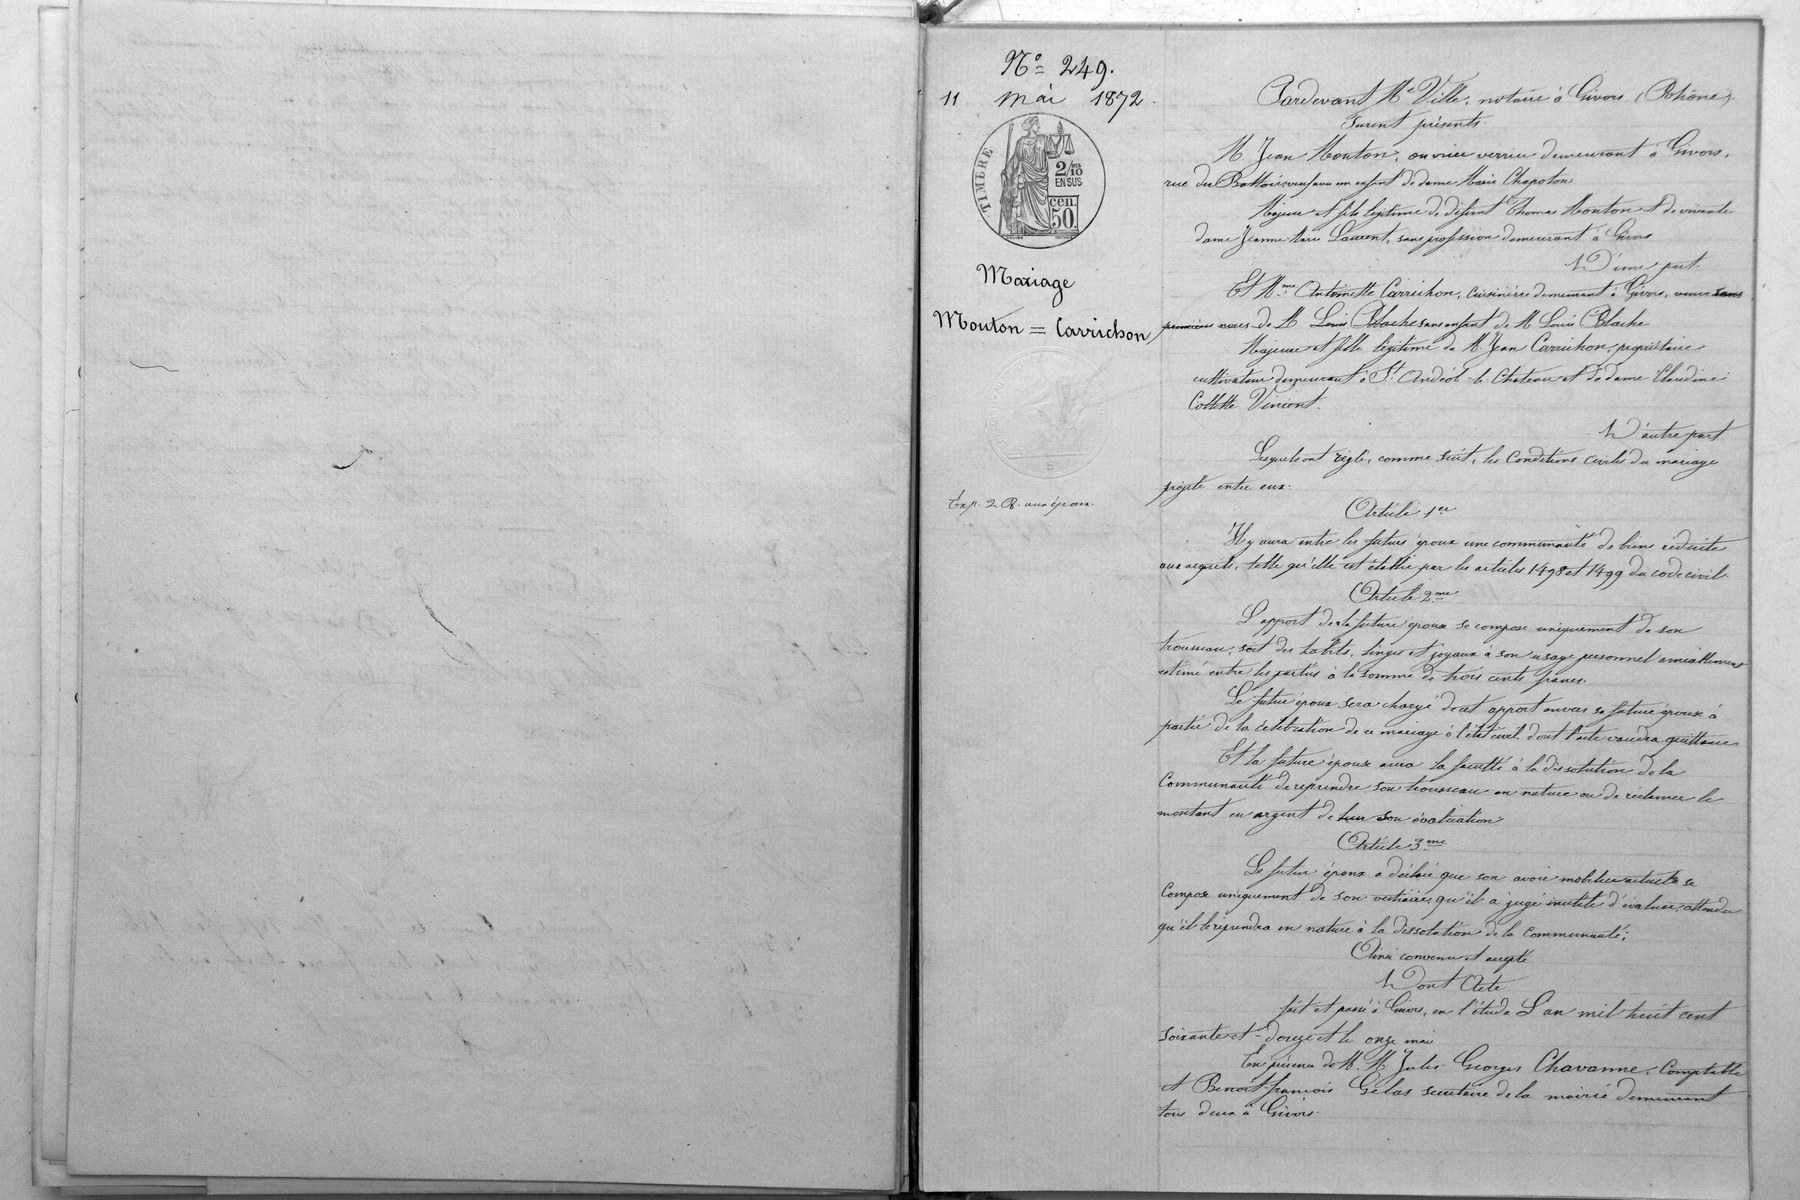 N° 249.
11 mai 1872.
TIMBRE
2/10
EN SUS
cen.
50.
Mariage
Mouton = Carrichon
Exp. 2 R. aux époux.
Pardevant Me Ville, notaire à Givors (Rhône)
Furent présents.
M. Jean Mouton, ouvrier verrier demeurant à Givors,
rue du veuf enfant de dame Marie Chapoton
Majeur et fils légitime de défunt Thomas Mouton et de vivante
dame Jeanne Marie Laurent, sans profession demeurant à Givors
D'une part.
Et Mme Antoinette Carrichon, cuisinière demeurant à Givors, veuve sans
premières noces de M. Louis Blache sans enfant de M. Louis Blache
Majeure et fille légitime de M. Jean Carrichon, propriétaire
cultivateur demeurant à St. Andéol-le-Château et de dame Claudine
Collette Vincent.
D'autre part
Lesquels ont réglé, comme suit, les conditions civiles du mariage
projeté entre eux.
Article 1er
Il y aura entre les futurs époux une communauté de biens réduite
aux acquets, telle qu'elle est établie par les articles 1498 et 1499 du code civil.
Article 2me
L'apport de la future épouse se compose uniquement de son
trousseau, soit des habits, linges et joyaux à son usage personnel amiablement
estimé entre les parties à la somme de trois cents francs.
Le futur époux sera chargé dud apport envers sa future épouse à
partir de la célébration de ce mariage à l'état civil dont l'acte vaudra quittance
Et la future épouse aura la faculté à la dissolution de la
Communauté de reprendre son trousseau en nature ou de réclamer le
montant en argent de son évaluation
Article 3me
Le futur époux a déclaré que son avoir mobilier actuel se
Compose uniquement de son vestiaire qu'il a jugé inutile d'évaluer, attendu
qu'il le reprendra en nature à la dissolution de la communauté;
Ainsi convenu et accepté
Dont Acte
fait et passé à Givors, en l'étude L'an mil huit cent
soixante et douze et le onze mai
En présence de M. M. Jules Georges Chavanne, Comptable
et Benoit-françois Gelas secrétaire de la mairie demeurant
tous deux à Givors.